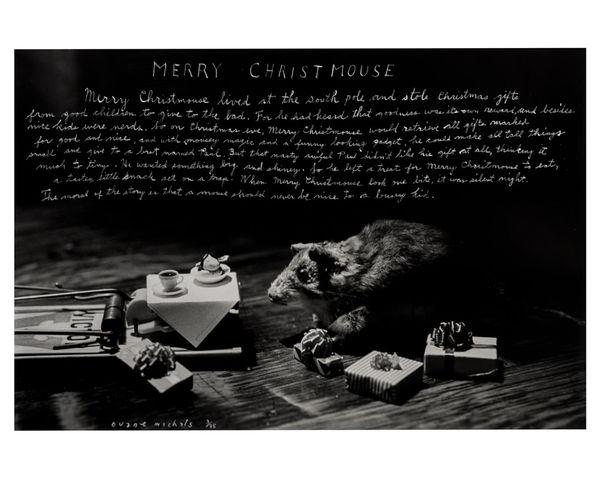 MERRY CHRISTMOUSE
Merry Christmouse lived at the south pole and stole Christmas gifts
from good children to give to the bad. For he had heard that goodness was its own reward, and besides
nice kids were nerds. So on Christmas eve, Merry Christmouse would retrieve all gifts marked
for good and nice, and with mousey magic and a funny looking gadget, he could make all tall things
small and give to a brat named Paul. But that nasty awful Paul didn't like his gift at all, thinking it
much to tiny. He wanted something big and shiney. So he left a treat for Merry Christmouse to eat,
a tastey little snack set on a trap. When Merry Christmouse took one bite, it was silent night.
The moral of the story is that a mouse should never be nice to a lousey kid.
VICTOR
Duane Michals /25